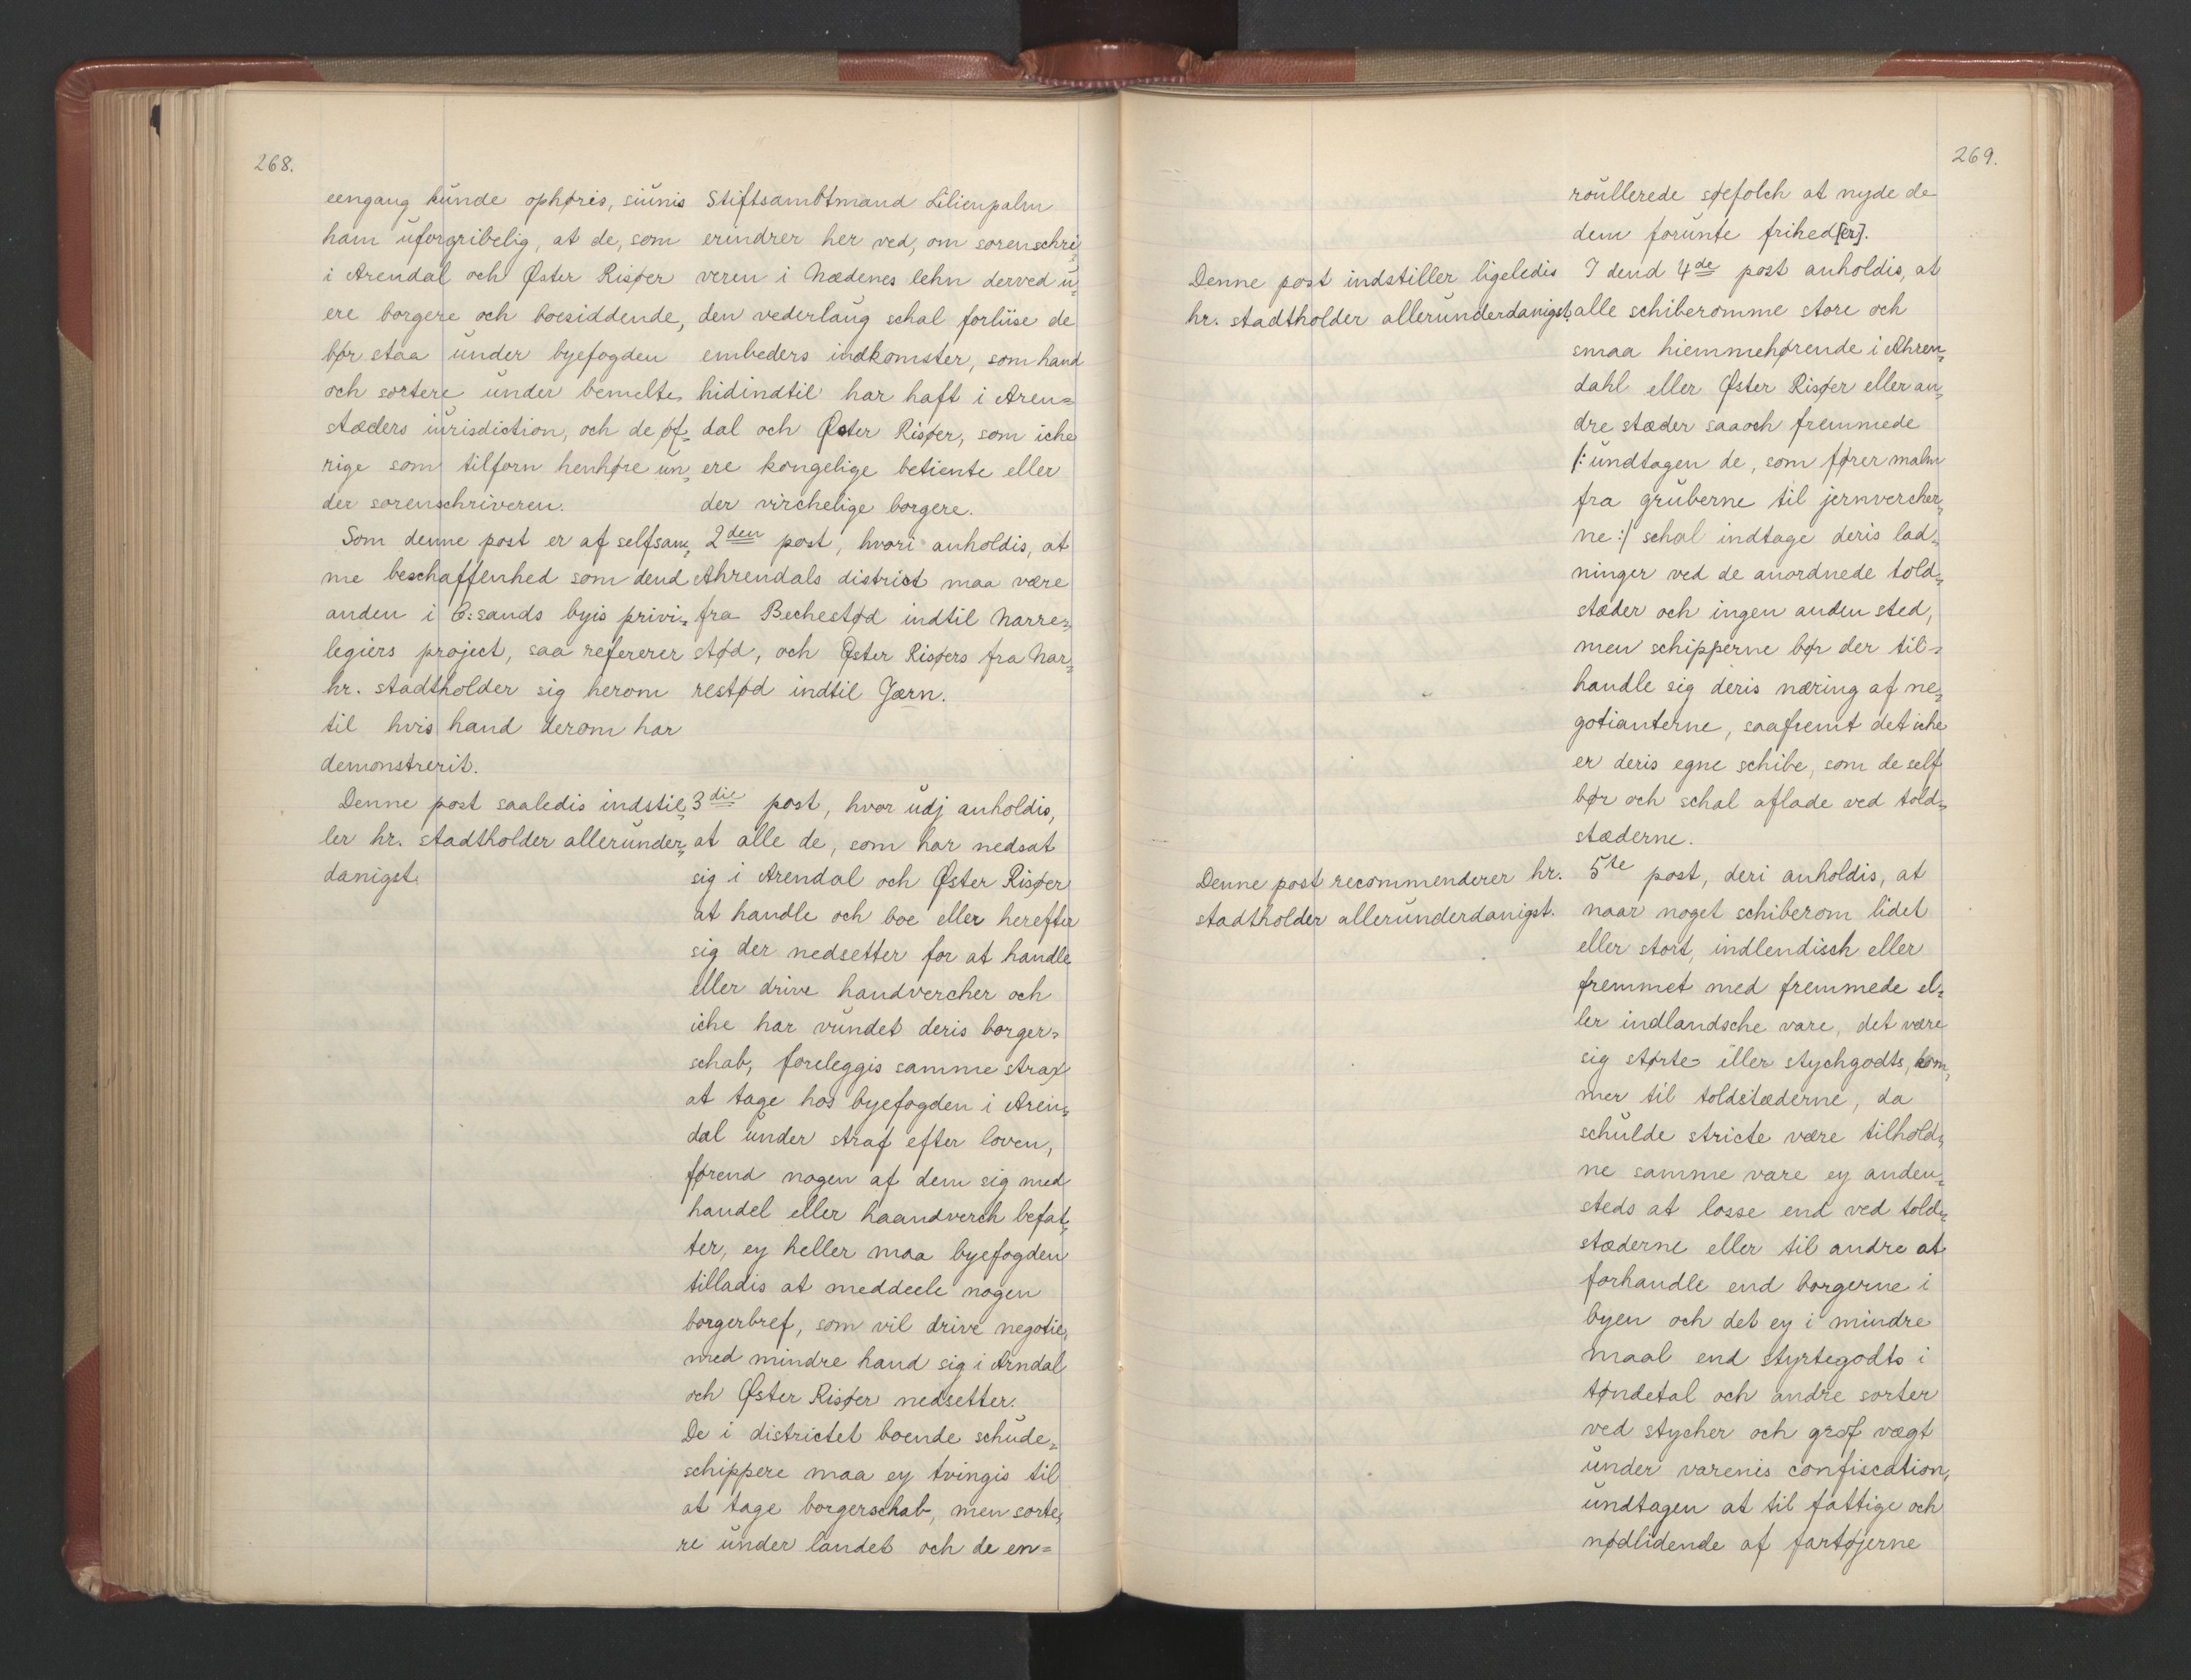 268.
eengang kunde ophøris, siunis
ham uforgribelig, at de, som
i Arendal och Øster Risøer
ere borgere och boesiddende,
bør staa under byefogden
och sortere under bemelte
stæders iurisdiction, och de øf-
rige som tilforn henhøre un-
der sorenschriveren.
Som denne post er af selfsam-
me beschaffenhed som dend
anden i C:sands byis privi-
legiers project, saa refererer
hr. stadtholder sig herom
til hvis hand derom har
demonstrerit.
Denne post saaledis indstil-
ler hr. stadtholder allerunder-
danigst.
Stiftsambtmand Lilienpalm
erindrer her ved, om sorenschri-
veren i Nædenes lehn derved u-
den vederlaug schal forliise de
embeders indkomster, som hand
hidindtil har haft i Aren=
dal och Øster Risøer, som iche
ere kongelige betiente eller
der virchelige borgere.
2den post, hvori anholdis, at
Ahrendals district maa være
fra Bechestød indtil Narre-
stød, och Øster Risøers fra Nar-
restød indtil Jærn.
3die post, hvor udj anholdis,
at alle de, som har nedsat
sig i Arendal och Øster Risøer
at handle och boe eller herefter
sig der nedsetter for at handle
eller drive handvercher och
iche har vundet deris borger=
schab, foreleggis samme strax
at tage hos byefogden i Aren-
dal under straf efter loven,
førend nogen af dem sig med
handel eller haandverch befat-
ter, ey heller maa byefogden
tilladis at meddeele nogen
borgerbref, som vil drive negotie,
med mindre hand sig i Arndal
och Øster Risøer nedsetter.
De i districtet boende schude-
schippere maa ey tvingis til
at tage borgerschab, men sorte-
re under landet och de en=
269.
roullerede søefolch at nyde de
dem forunte frihed[er].
Denne post indstiller ligeledis
hr. stadtholder allerunderdanigst.
I dend 4de post anholdis, at
alle schiberomme store och
smaa hiemmehørende i Ahren-
dahl eller Øster Risøer eller an-
dre stæder saaoch fremmede
/: undtagen de, som fører malm
fra gruberne til jernvercher-
ne :/ schal indtage deris lad-
ninger ved de anordnede told-
stæder och ingen anden sted,
men schipperne bør der til=
handle sig deris næring af ne-
gotianterne, saafremt det iche
er deris egne schibe, som de self
bør och schal aflade ved told-
stæderne.
Denne post recommenderer hr.
stadtholder allerunderdanigst.
5te post, deri anholdis, at
naar noget schiberom lidet
eller stort, indlendisch eller
fremmet med fremmede el-
ler indlandsche vare, det være
sig størte= eller stychgodts, kom-
mer til toldstæderne, da
schulde stricte være tilhold-
ne samme vare ey anden-
steds at losse end ved told-
stæderne eller til andre at
forhandle end borgerne i
byen och det ey i mindre
maal end styrtegodts i
tøndetal och andre sorter
ved stycher och grof vægt
under varenis confiscation,
undtagen at til fattige och
nødlidende af fartøjerne